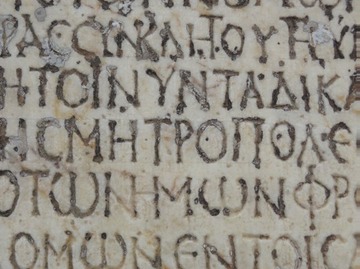 ΡΑϹϹΩΝΚΑΙΤΟΥΓ
ΗΤΟΙΝΥΝΤΑΔΙΚΑ
ΗϹΜΗΤΡΟΠΟΛΕ
ΟΤΩΝΗΜΩΝΦΡ
ΟΜΩΝΕΝΤΟΙϹ